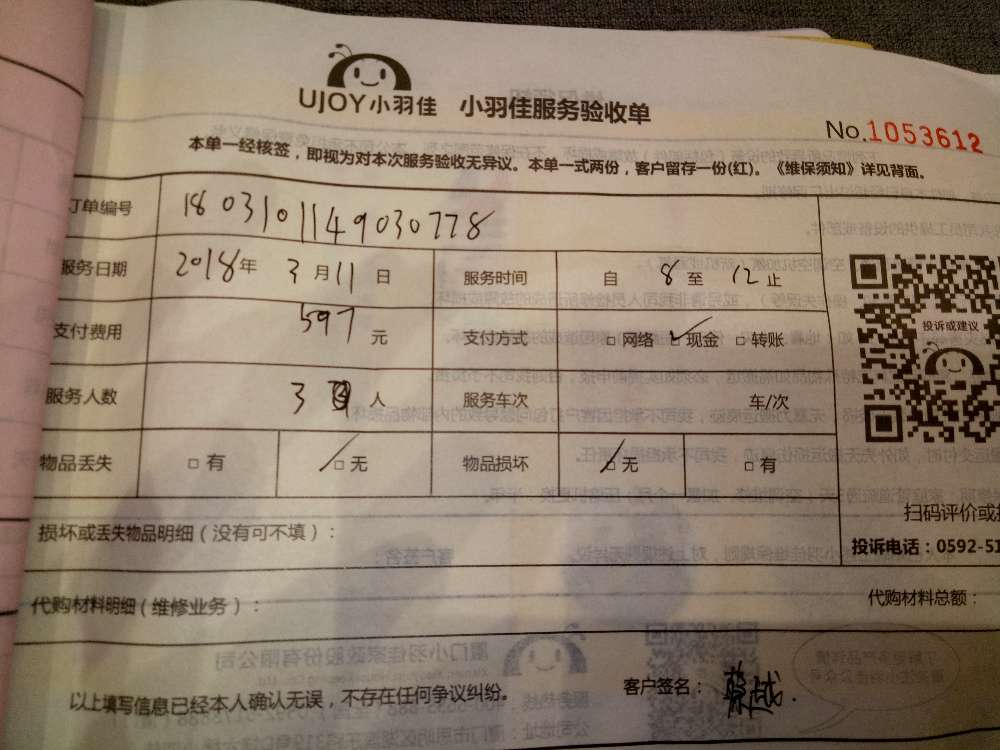 UJOY小羽佳 小羽佳服务验收单
No.1053612
本单一经核签，即视为对本次服务验收无异议。本单一式两份，客户留存一份(红)。《维保须知》详见背面。
订单编号 1803101149030778
服务日期 2018年 3月11日 服务时间 自 8 至 12 止
支付费用 597 元 支付方式 □ 网络 ☑ 现金 □ 转账
服务人数 3 人 服务车次 车/次
物品丢失 □ 有 ☑ 无 物品损坏 ☑ 无 □ 有
投诉或建议
扫码评价或
投诉电话：0592-51
损坏或丢失物品明细（没有可不填）：
代购材料明细（维修业务）： 代购材料总额：
以上填写信息已经本人确认无误，不存在任何争议纠纷。 客户签名：